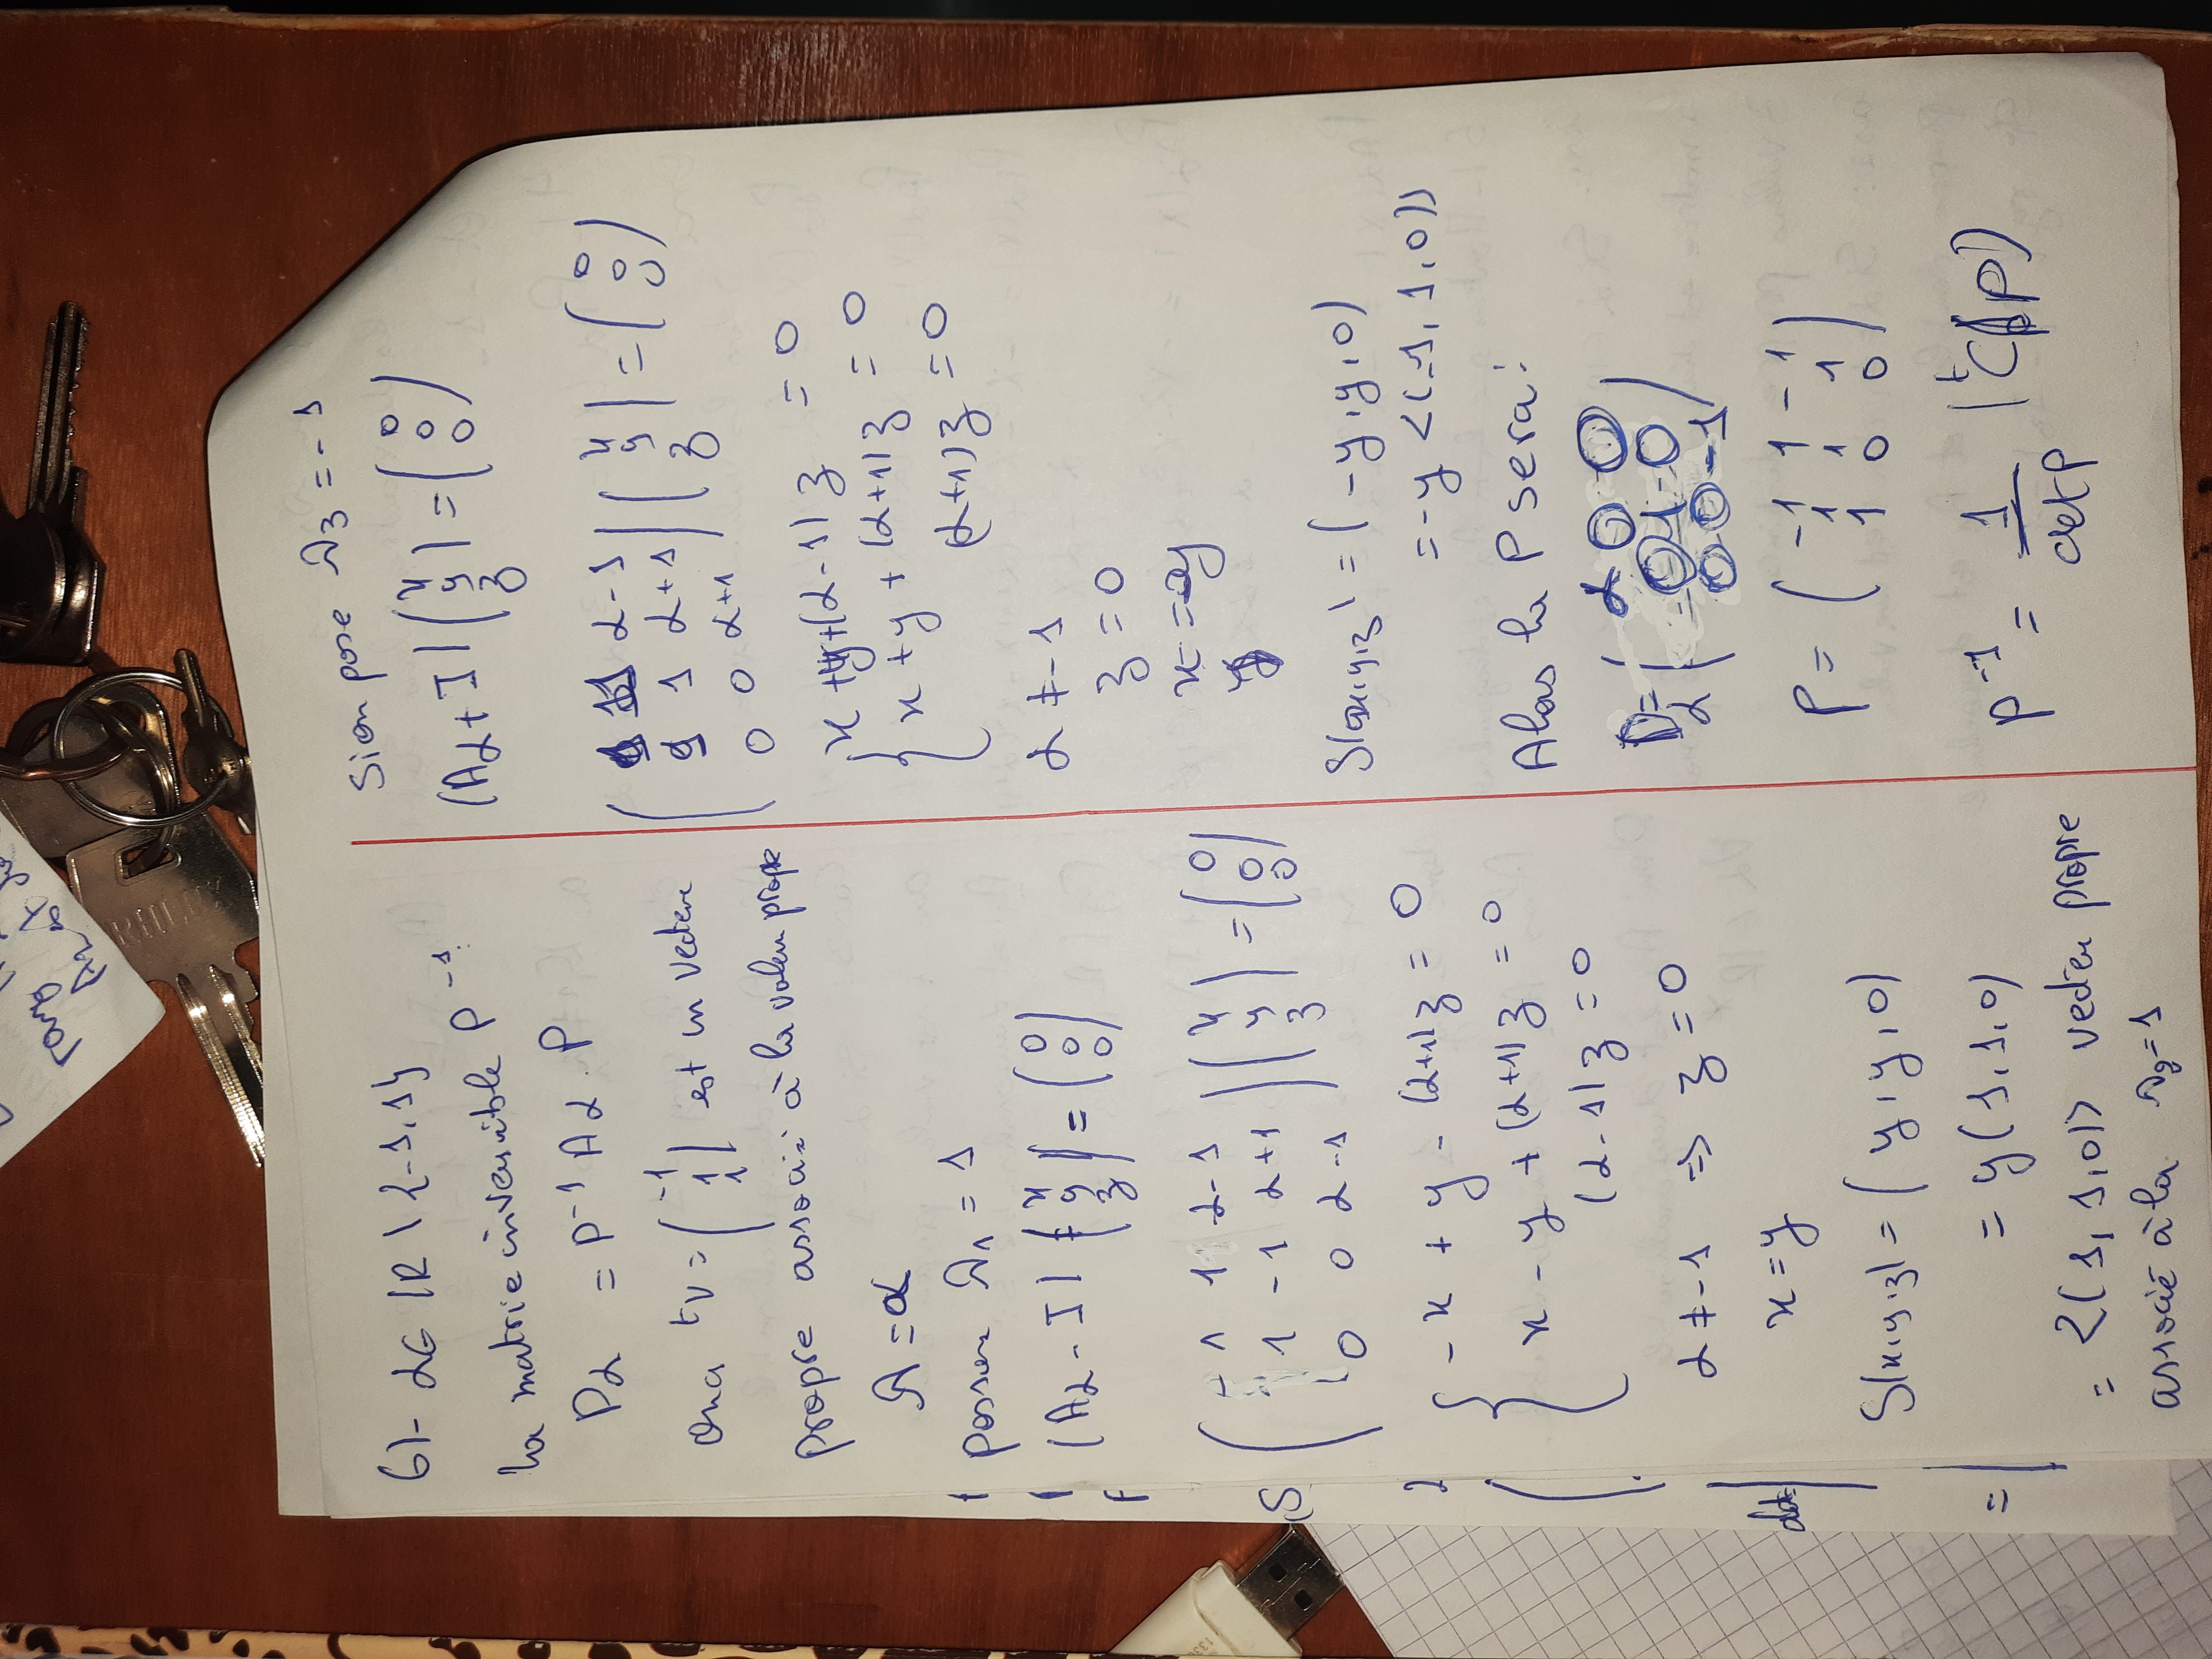 6)- α∈ ℝ \ {-1, 1}
la matrice inversible P⁻¹
Pα = P⁻¹ Aα . P
ona tv = (-1 1 1) est un vecteur
propre associé à la valeur propre
λ = α
posson λ₁ = 1
(Aα - I) (x y z) = (0 0 0)
( -1 1 α-1
1 -1 α+1
0 0 α-1 ) (x y z) = (0 0 0)
{ -x + y - (α+1)z = 0
x - y + (α+1)z = 0
(α-1)z = 0
α ≠ -1 ⇒ z = 0
x = y
S(x,y,z) = (y, y, 0)
= y(1, 1, 0)
= <(1, 1, 0)> vecteur propre
associé à la λ₂=1
Sion pose λ₃ = -1
(Aα + I) (x y z) = (0 0 0)
( 1 1 α-1
1 1 α+1
0 0 α+1 ) (x y z) = (0 0 0)
{ x+y+(α-1)z = 0
x+y + (α+1)z = 0
(α+1)z = 0
α ≠ -1
z = 0
x = -y
S(x,y,z) = (-y, y, 0)
= -y <(-1, 1, 0)>
Alors la P sera:
D = ( α 0 0
0 1 0
0 0 -1 )
P = ( -1 1 -1
1 1 1
1 0 0 )
P⁻¹ = 1/det P (ᵗC(P))
2
det
=